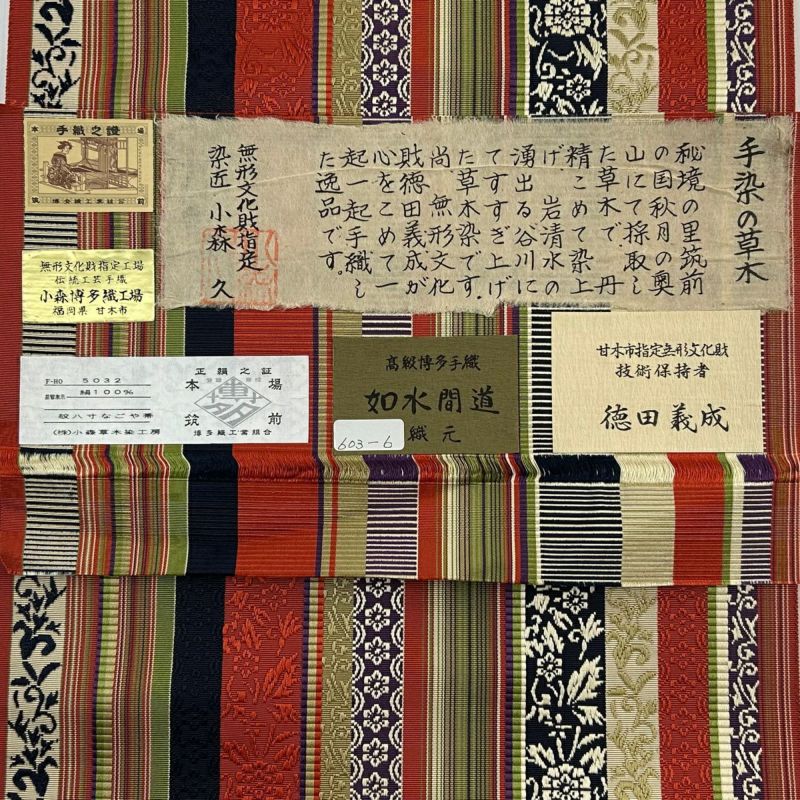 手織之證
本場
筑前
博多織工業組合
手染の草木
秘境の里筑前
の国秋月の奥
山にて採取し
た草木で、丹
精こめて染上
げ、岩清水の
湧出る谷川に
てすすぎ上げ
た草木染です。
尚、無形文化
財徳田義成が
心をこめて一
起一起手織し
た逸品です。
無形文化財指定
染匠 小森 久
無形文化財指定工場
伝統工芸手織
小森博多織工場
福岡県 甘木市
正絹之証
本場
筑前
博多織工業組合
F-HO 5032
絹100%
紋八寸なごや帯
(株)小森草木染工房
高級博多手織
如水間道
織元
603-6
甘木市指定無形文化財
技術保持者
徳田義成